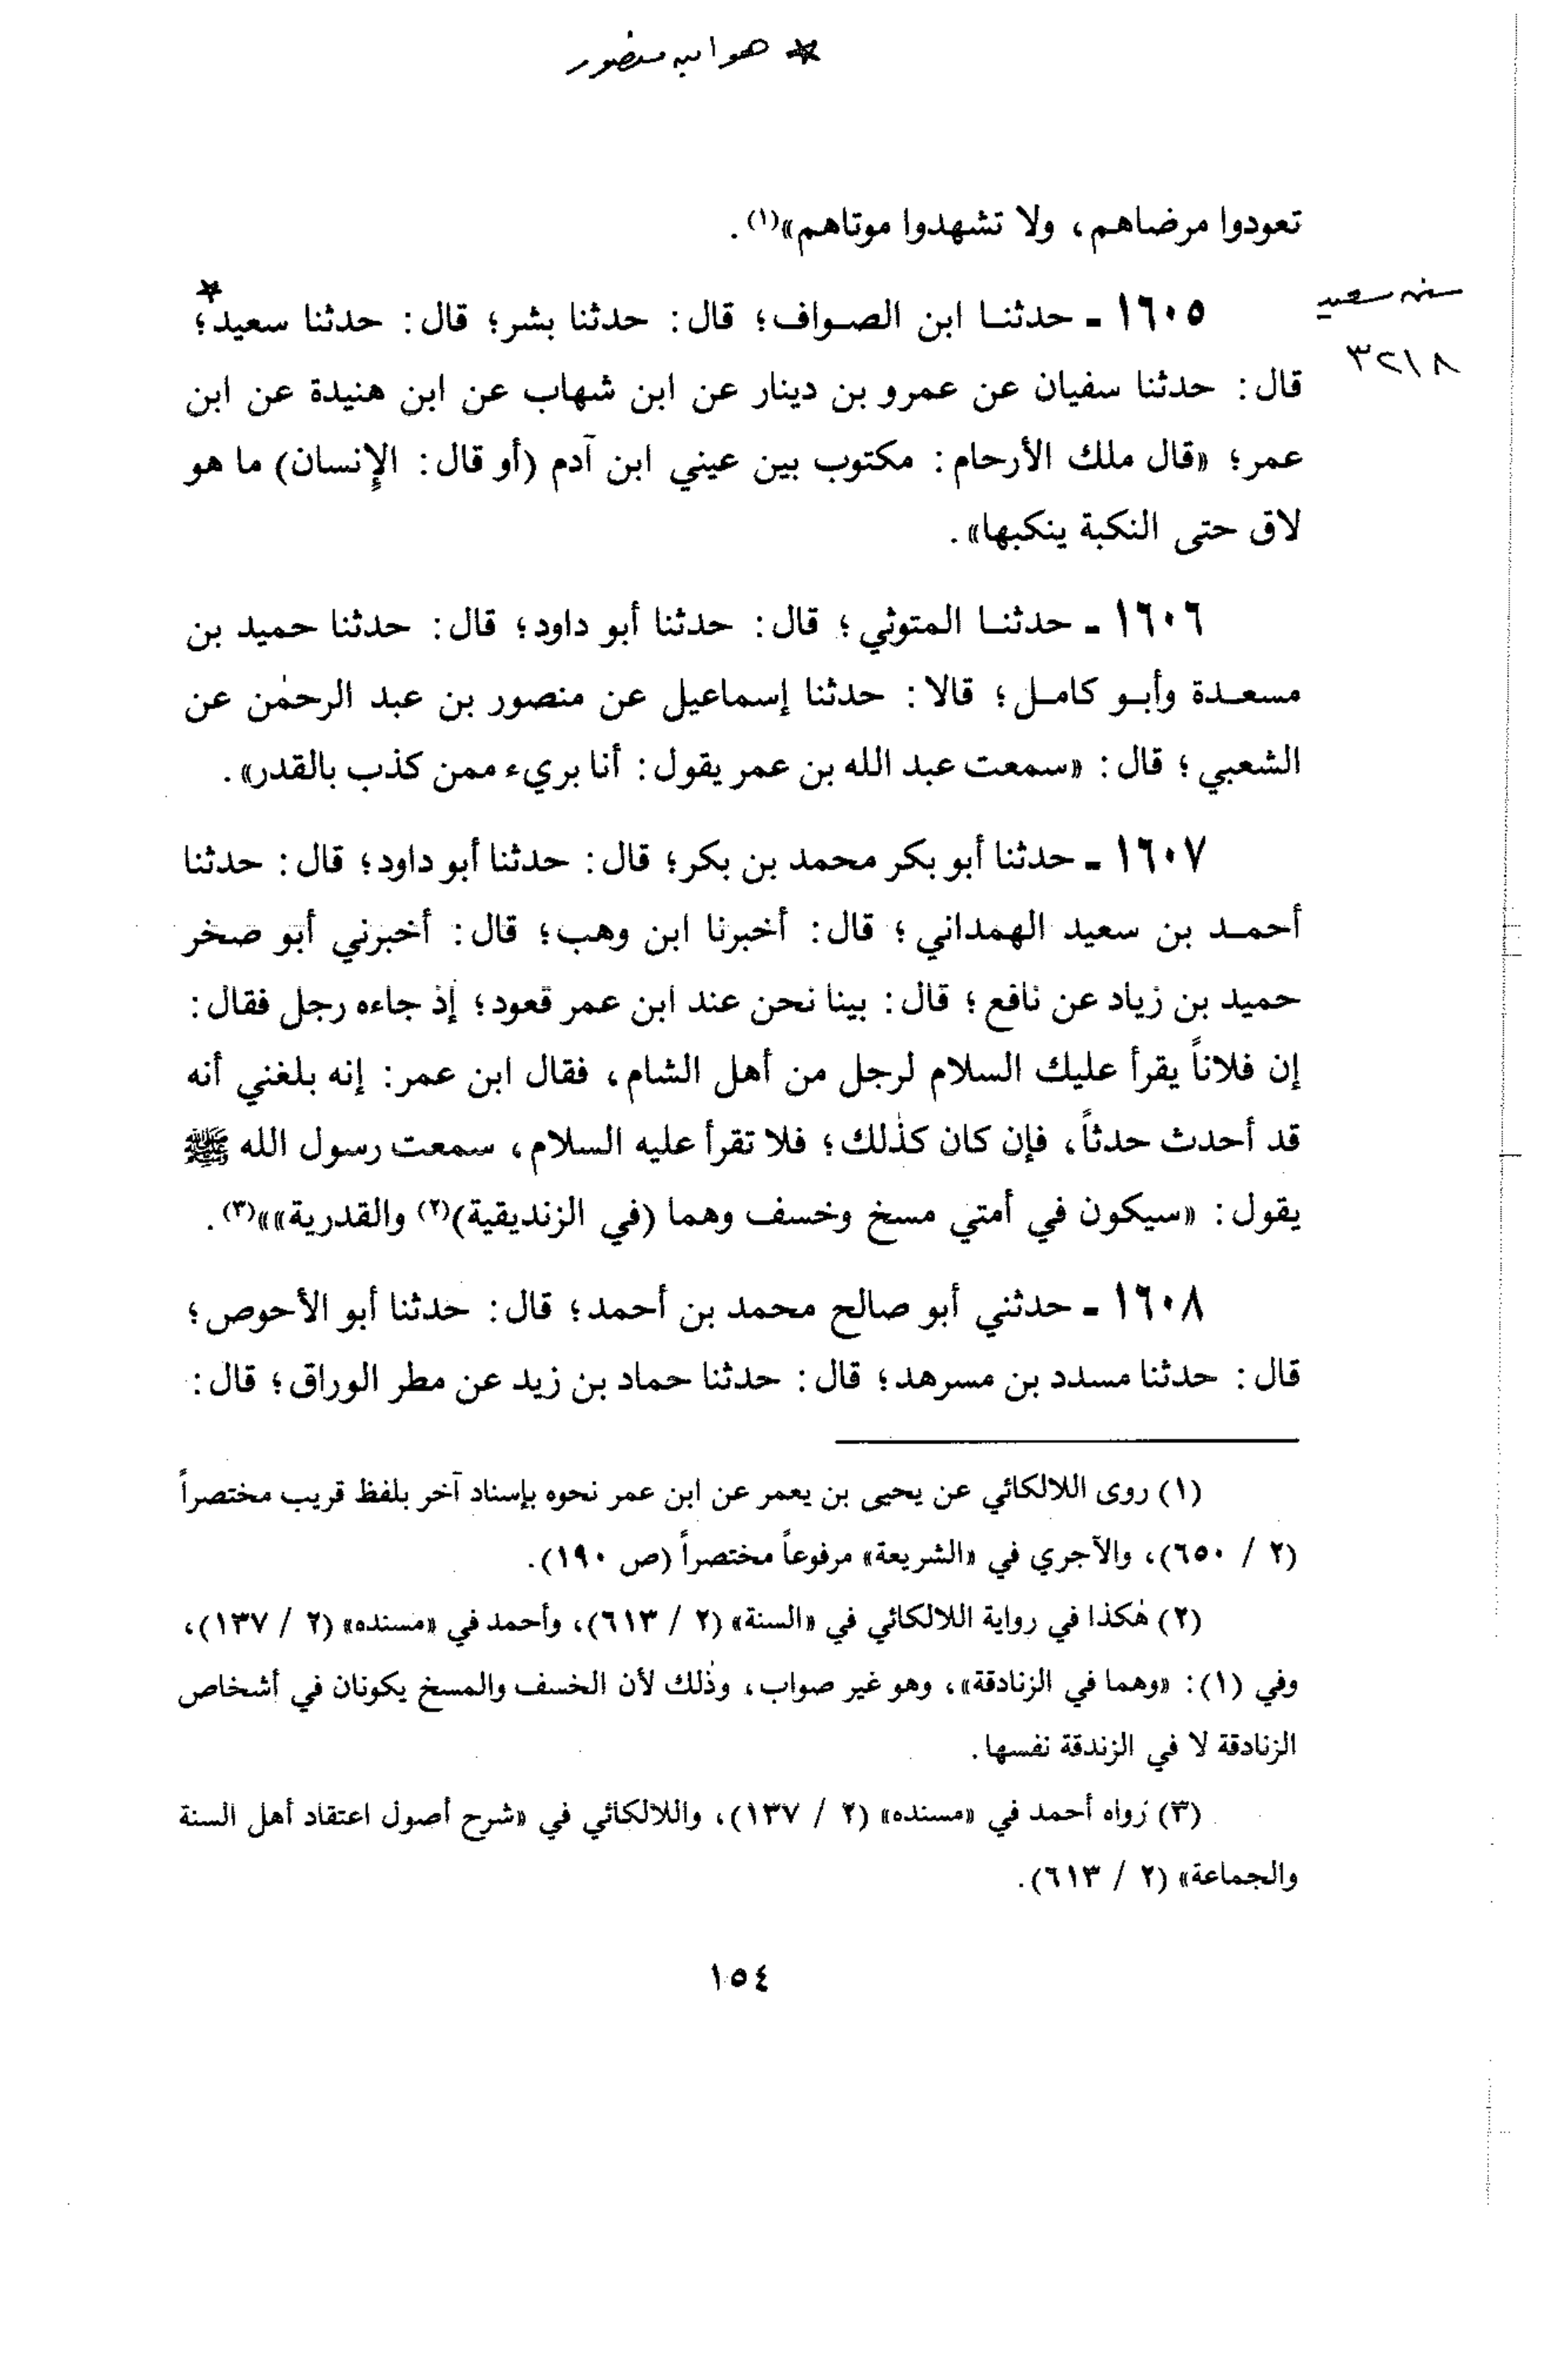 * هو ابن منصور
تعودوا مرضاهم، ولا تشهدوا موتاهم»(١).
سنن سعيد
٣٢١٨
١٦٠٥ - حدثنا ابن الصواف؛ قال: حدثنا بشر؛ قال: حدثنا سعيد*؛
قال: حدثنا سفيان عن عمرو بن دينار عن ابن شهاب عن ابن هنيدة عن ابن
عمر؛ «قال ملك الأرحام: مكتوب بين عيني ابن آدم (أو قال: الإنسان) ما هو
لاق حتى النكبة ينكبها».
١٦٠٦ - حدثنا المتوثي؛ قال: حدثنا أبو داود؛ قال: حدثنا حميد بن
مسعدة وأبو كامل؛ قالا: حدثنا إسماعيل عن منصور بن عبد الرحمٰن عن
الشعبي؛ قال: «سمعت عبد الله بن عمر يقول: أنا بريء ممن كذب بالقدر».
١٦٠٧ - حدثنا أبو بكر محمد بن بكر؛ قال: حدثنا أبو داود؛ قال: حدثنا
أحمد بن سعيد الهمداني؛ قال: أخبرنا ابن وهب؛ قال: أخبرني أبو صخر
حميد بن زياد عن نافع؛ قال: بينا نحن عند ابن عمر قعود؛ إذ جاءه رجل فقال:
إن فلاناً يقرأ عليك السلام لرجل من أهل الشام، فقال ابن عمر: إنه بلغني أنه
قد أحدث حدثاً، فإن كان كذٰلك؛ فلا تقرأ عليه السلام، سمعت رسول الله ﷺ
يقول: «سيكون في أمتي مسخ وخسف وهما (في الزنديقية)(٢) والقدرية»»(٣).
١٦٠٨ - حدثني أبو صالح محمد بن أحمد؛ قال: حدثنا أبو الأحوص؛
قال: حدثنا مسدد بن مسرهد؛ قال: حدثنا حماد بن زيد عن مطر الوراق؛ قال:
(١) روى اللالكائي عن يحيى بن يعمر عن ابن عمر نحوه بإسناد آخر بلفظ قريب مختصراً
(٢ / ٦٥٠)، والآجري في «الشريعة» مرفوعاً مختصراً (ص ١٩٠).
(٢) هٰكذا في رواية اللالكائي في «السنة» (٢ / ٦١٣)، وأحمد في «مسنده» (٢ / ١٣٧)،
وفي (١): «وهما في الزنادقة»، وهو غير صواب، وذٰلك لأن الخسف والمسخ يكونان في أشخاص
الزنادقة لا في الزندقة نفسها.
(٣) رواه أحمد في «مسنده» (٢ / ١٣٧)، واللالكائي في «شرح أصول اعتقاد أهل السنة
والجماعة» (٢ / ٦١٣).
١٥٤